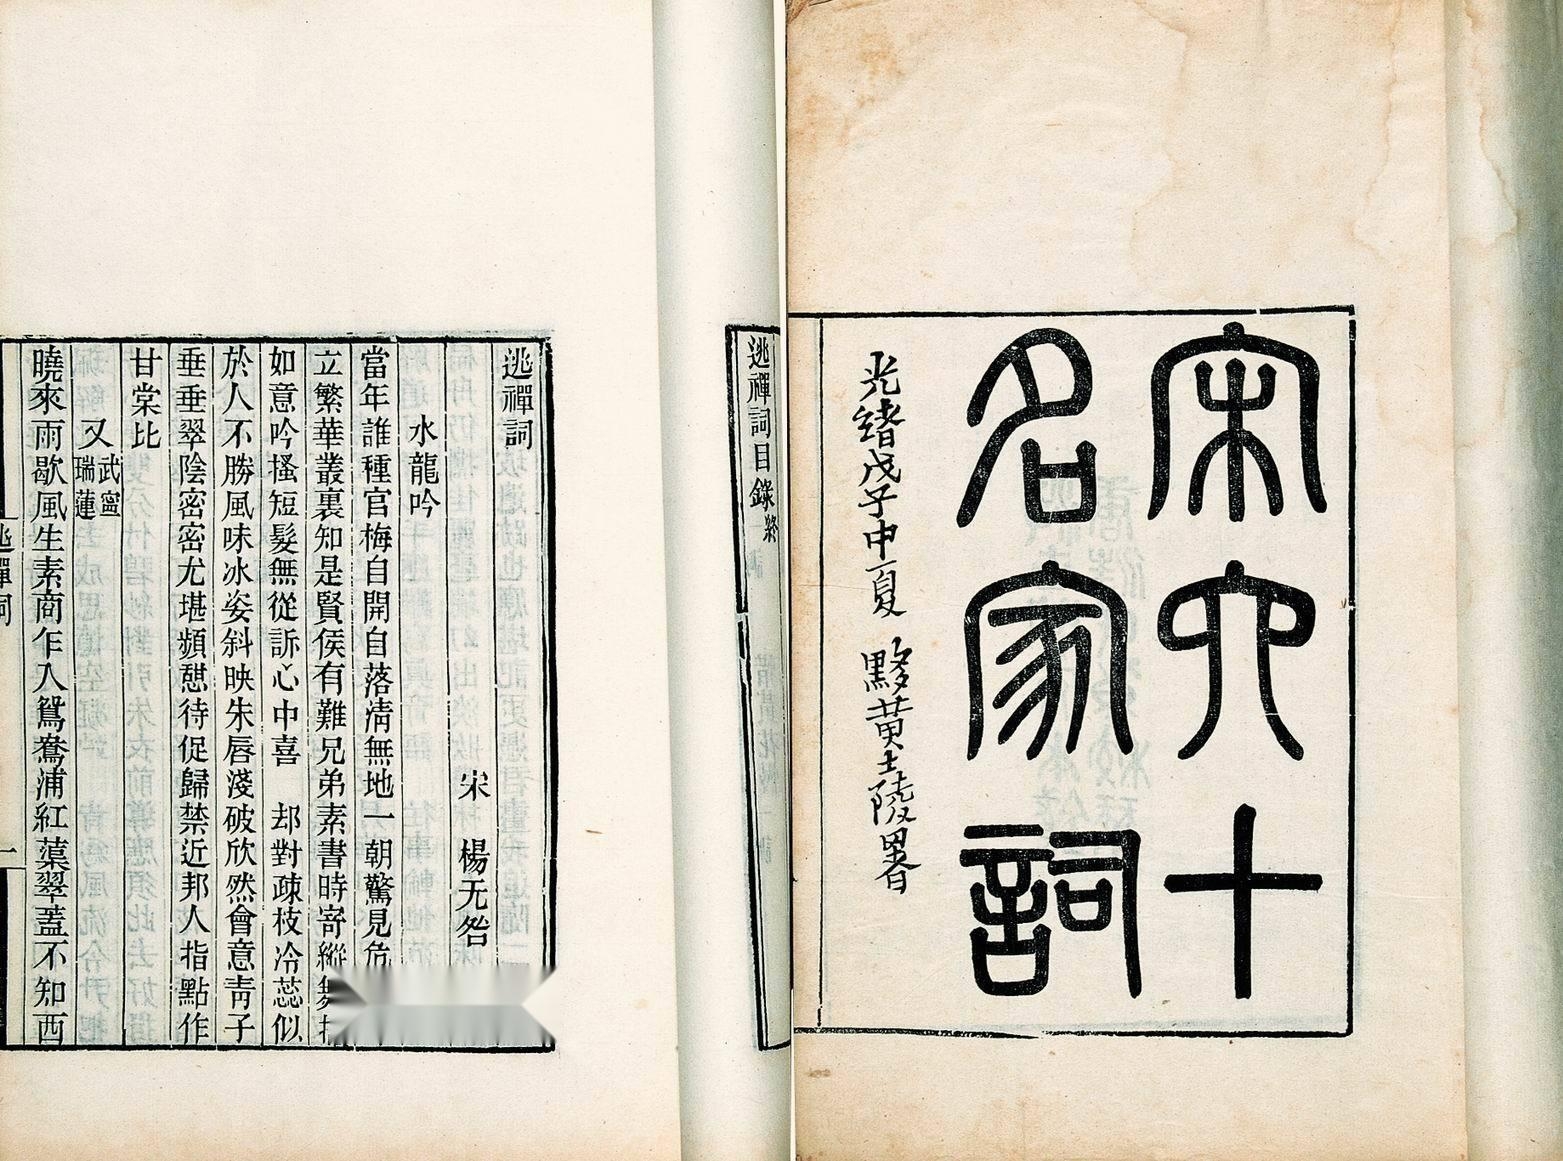 宋六十
名家詞
光緒戊子中夏 黟黃士陵署
逃禪詞目錄終
逃禪詞
宋 楊无咎
水龍吟
當年誰種官梅自開自落淸無地一朝驚見危
立繁華叢裏知是賢侯有難兄弟素書時寄縱
如意吟搔短髮無從訴心中喜 却對疎枝冷蕊似
於人不勝風味冰姿斜映朱唇淺破欣然會意靑子
垂垂翠陰密密尤堪頻憇待促歸禁近邦人指點作
甘棠比
又 武寧瑞蓮
曉來雨歇風生素商乍入鴛鴦浦紅蕖翠蓋不知西
逃禪詞
一